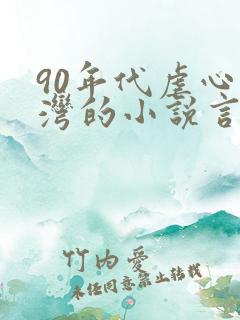 90年代虐心
灣的小説言
竹内愛
未经同意禁止转载